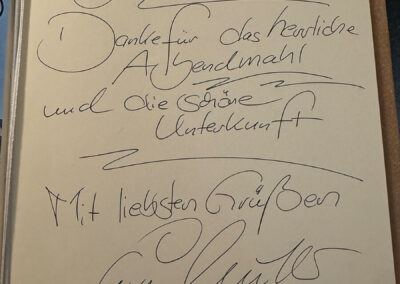 Danke für das herrliche
Abendmahl
und die schöne
Unterkunft
Mit liebsten Grüßen